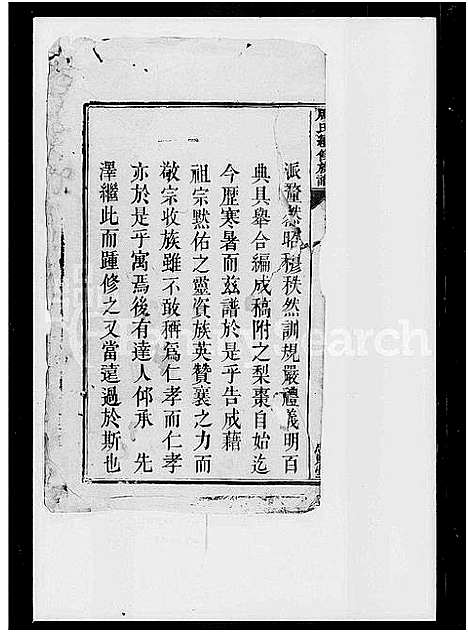 派釐然昭穆秩然訓規嚴禮義明百
典具舉合編成稿附之梨棗自始迄
今歷寒暑而茲譜於是乎告成藉
祖宗默佑之靈資族英贊襄之力而
敬宗收族雖不敢稱爲仁孝而仁孝
亦於是乎寓焉後有達人仰承　先
澤繼此而踵修之又當遠過於斯也